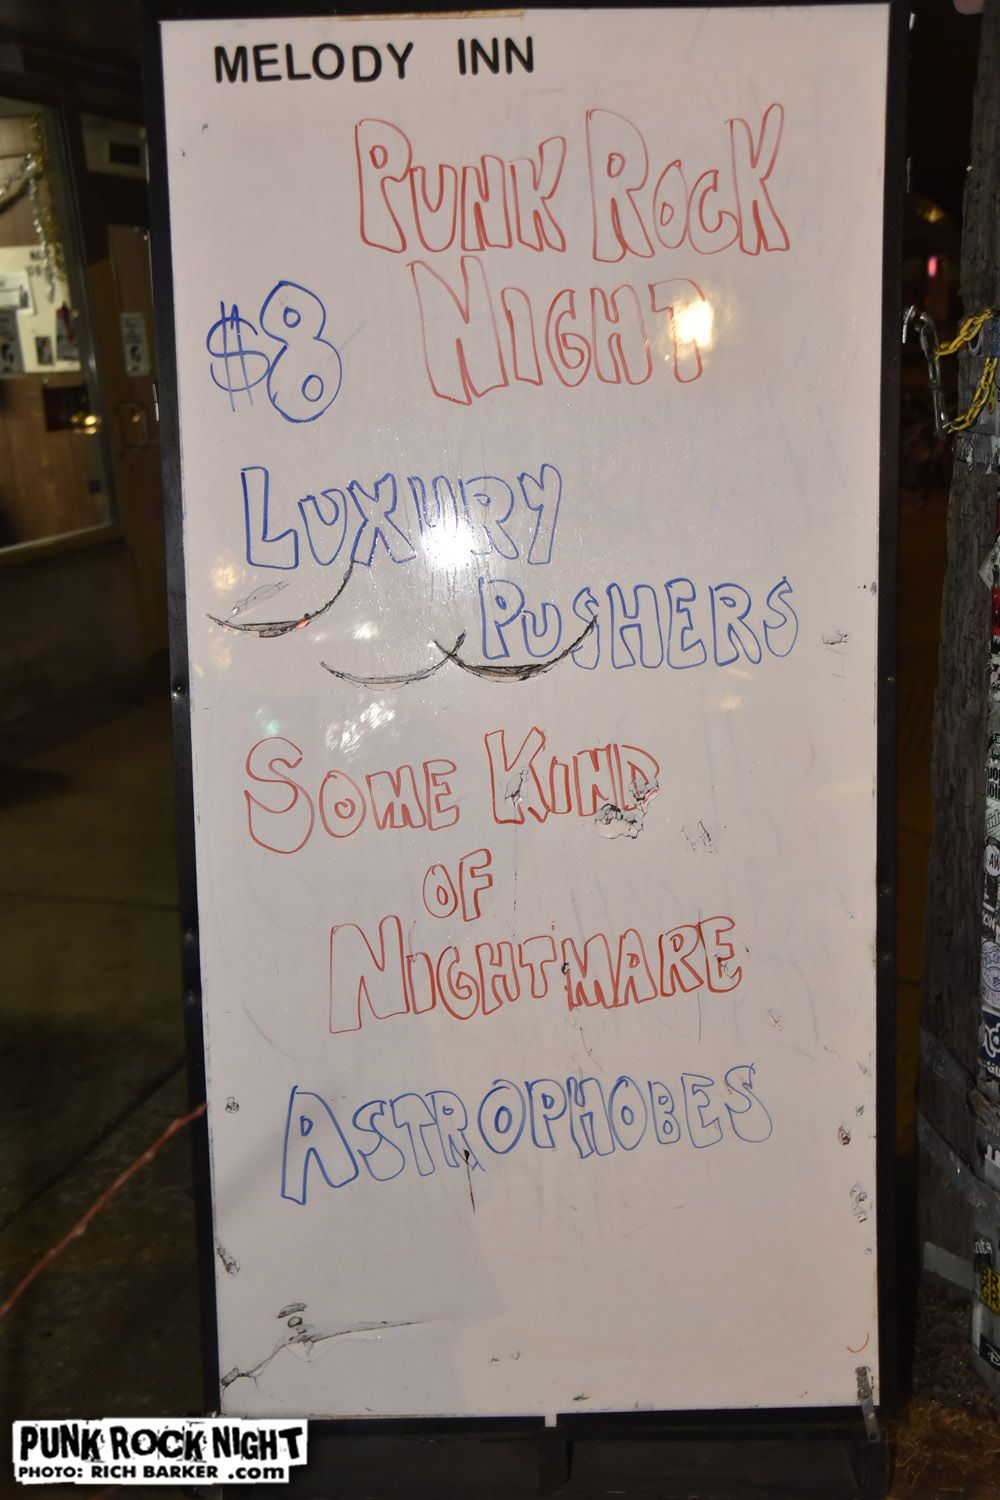 MELODY INN
PUNK ROCK
$8 NIGHT
LUXURY
PUSHERS
SOME KIND
OF
NIGHTMARE
ASTROPHOBES
PUNK ROCK NIGHT
PHOTO: RICH BARKER .com